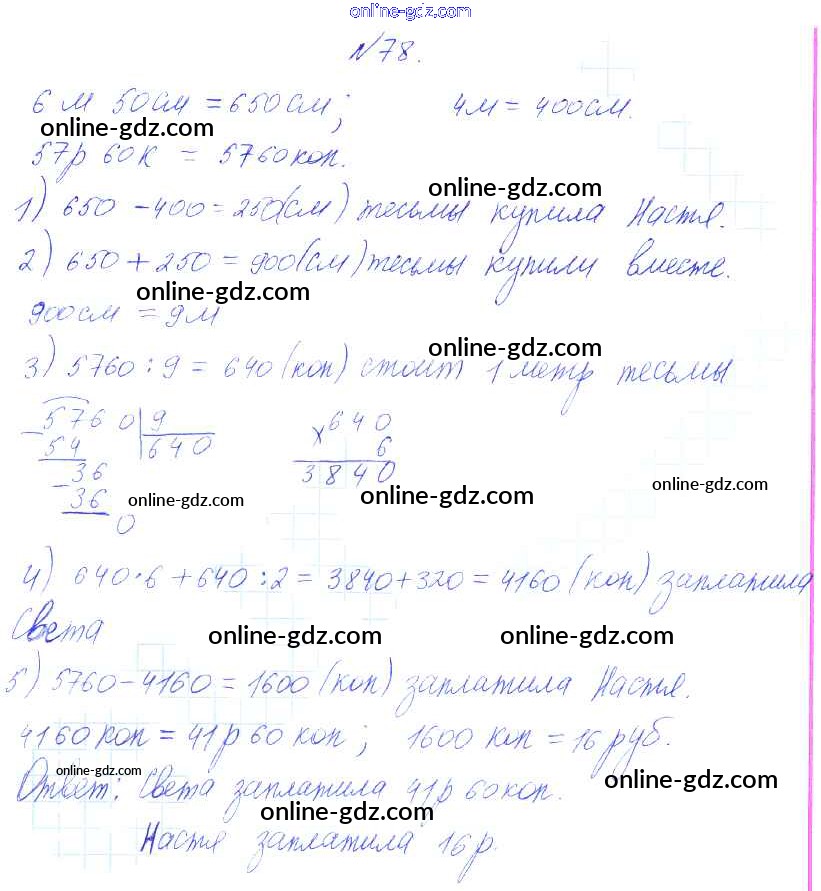 online-gdz.com
№78.
6 м 50 см = 650 см; 4м = 400 см.
online-gdz.com
57р 60 к = 5760 коп.
online-gdz.com
1) 650 - 400 = 250(см) тесьмы купила Настя.
2) 650 + 250 = 900(см) тесьмы купили вместе.
online-gdz.com
900 см = 9 м
online-gdz.com
3) 5760 : 9 = 640 (коп) стоит 1 метр тесьмы
- 5760 9 × 640
54 640 6
- 36 3840
36 online-gdz.com online-gdz.com online-gdz.com
0
4) 640·6 + 640 : 2 = 3840 + 320 = 4160 (коп) заплатила
Света online-gdz.com online-gdz.com
5) 5760 - 4160 = 1600 (коп) заплатила Настя.
4160 коп = 41 р 60 коп; 1600 коп = 16 руб.
online-gdz.com online-gdz.com
Ответ: Света заплатила 41р 60 коп.
online-gdz.com online-gdz.com
Настя заплатила 16 р.